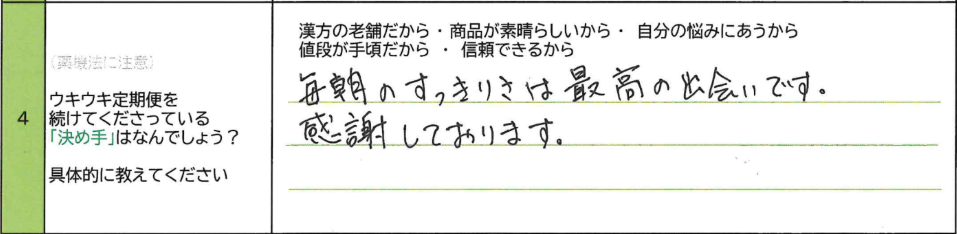 4
(薬機法に注意)
ウキウキ定期便を
続けてくださっている
「決め手」はなんでしょう？
具体的に教えてください
漢方の老舗だから・商品が素晴らしいから・ 自分の悩みにあうから
値段が手頃だから ・ 信頼できるから
毎朝のすっきりさは最高の出会いです。
感謝しております。